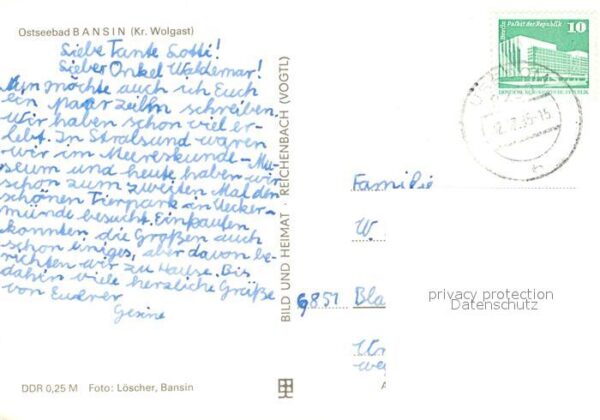 Ostseebad BANSIN (Kr. Wolgast)
Liebe Tante Lotti!
Lieber Onkel Waldemar!
Nun möchte auch ich Euch
ein paar Zeilen schreiben.
Wir haben schon viel er-
lebt. In Stralsund waren
wir im Meereskunde-Mu-
seum und heute haben wir
schon zum zweiten Mal den
schönen Tierpark in Uecker-
münde besucht. Einkaufen
konnten die Großen auch
schon einiges, aber davon be-
richten wir zu Hause. Bis
dahin viele herzliche Grüße
von Eurer
Gesine
DDR 0,25 M Foto: Löscher, Bansin
BILD UND HEIMAT · REICHENBACH (VOGTL)
Berlin, Palast der Republik
10
Familie
W.
6851 Bla
privacy protection
Datenschutz
A